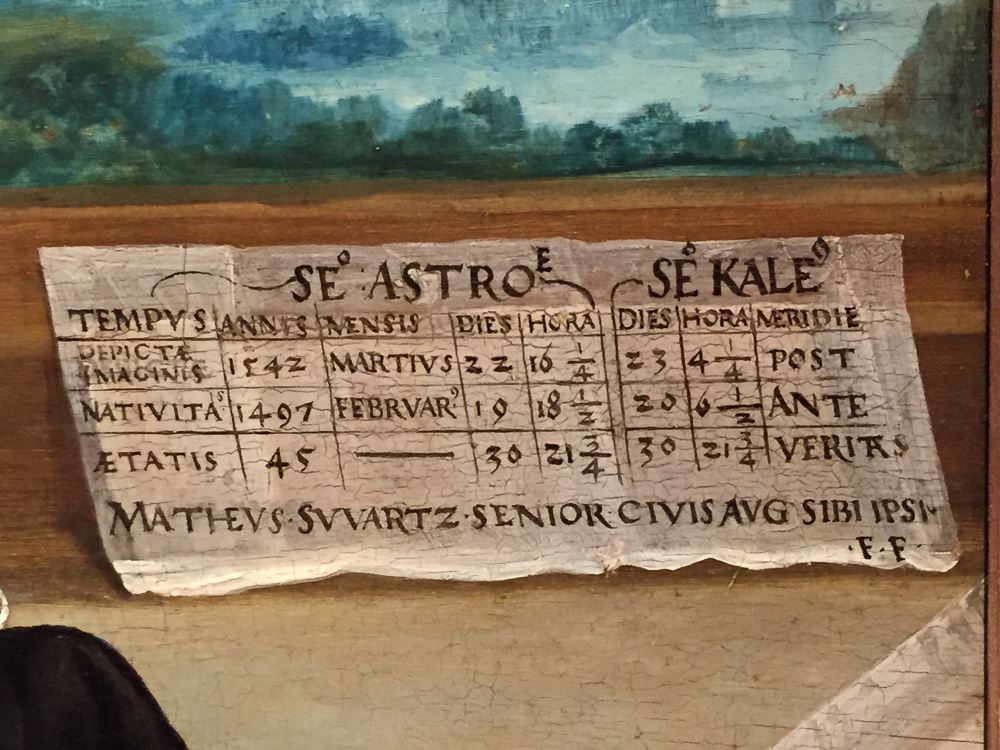 SEº ASTROᴱ SEº KALE⁹
TEMPVS ANNVS MENSIS DIES HORA DIES HORA MERIDIE
DEPICTÆ
IMAGINIS 1542 MARTIVS 22 16 1/4 23 4 1/4 POST
NATIVITAˢ 1497 FEBRVAR⁹ 19 18 1/2 20 6 1/2 ANTE
ÆTATIS 45 — 30 21 3/4 30 21 3/4 VERITAS
MATHEVS·SVVARTZ·SENIOR CIVIS AVG SIBI IPSI
·F·F·